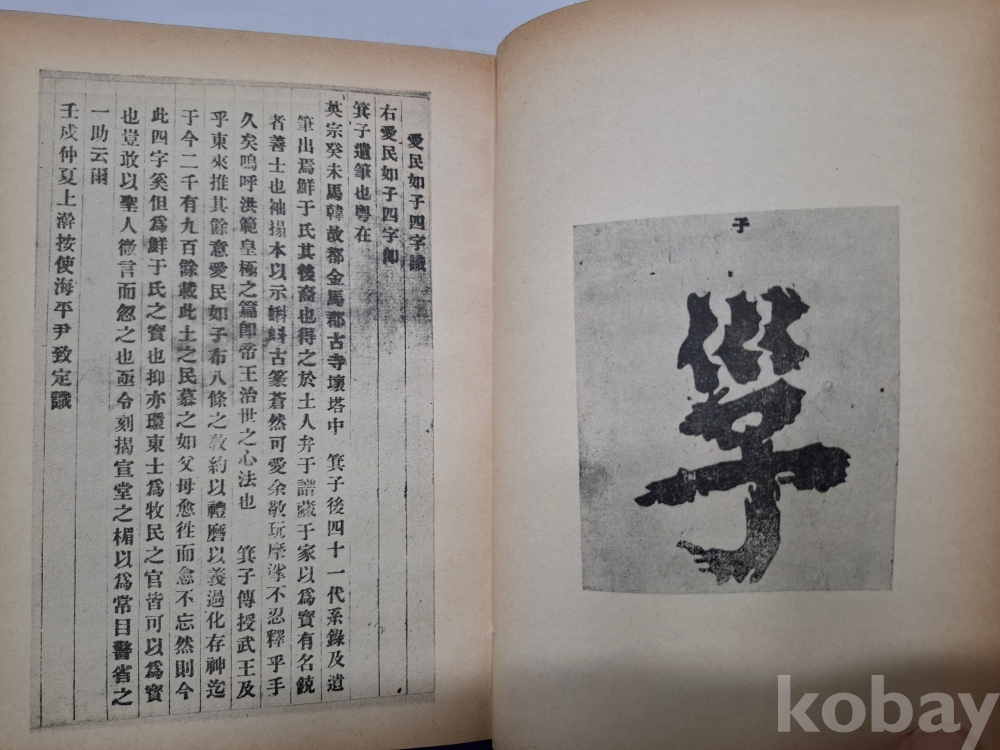 愛民如子四字識
右愛民如子四字卽
箕子遺筆也粤在
英宗癸未馬韓故都金馬郡古寺壞塔中 箕子後四十一代系錄及遺
筆出焉鮮于氏其後裔也得之於土人弁于譜藏于家以爲寶有名銑
者善士也袖搨本以示蝌蚪古篆蒼然可愛余敬玩摩挲不忍釋乎手
久矣嗚呼洪範皇極之篇卽帝王治世之心法也 箕子傳授武王及
乎東來推其餘意愛民如子布八條之敎約以禮磨以義過化存神迄
于今二千有九百餘載此土之民慕之如父母愈徃而愈不忘然則今
此四字奚但爲鮮于氏之寶也抑亦環東士爲牧民之官皆可以爲寶
也豈敢以聖人微言而忽之也亟令刻揭宣堂之楣以爲常目警省之
一助云爾
壬戌仲夏上澣按使海平尹致定識
子
kobay